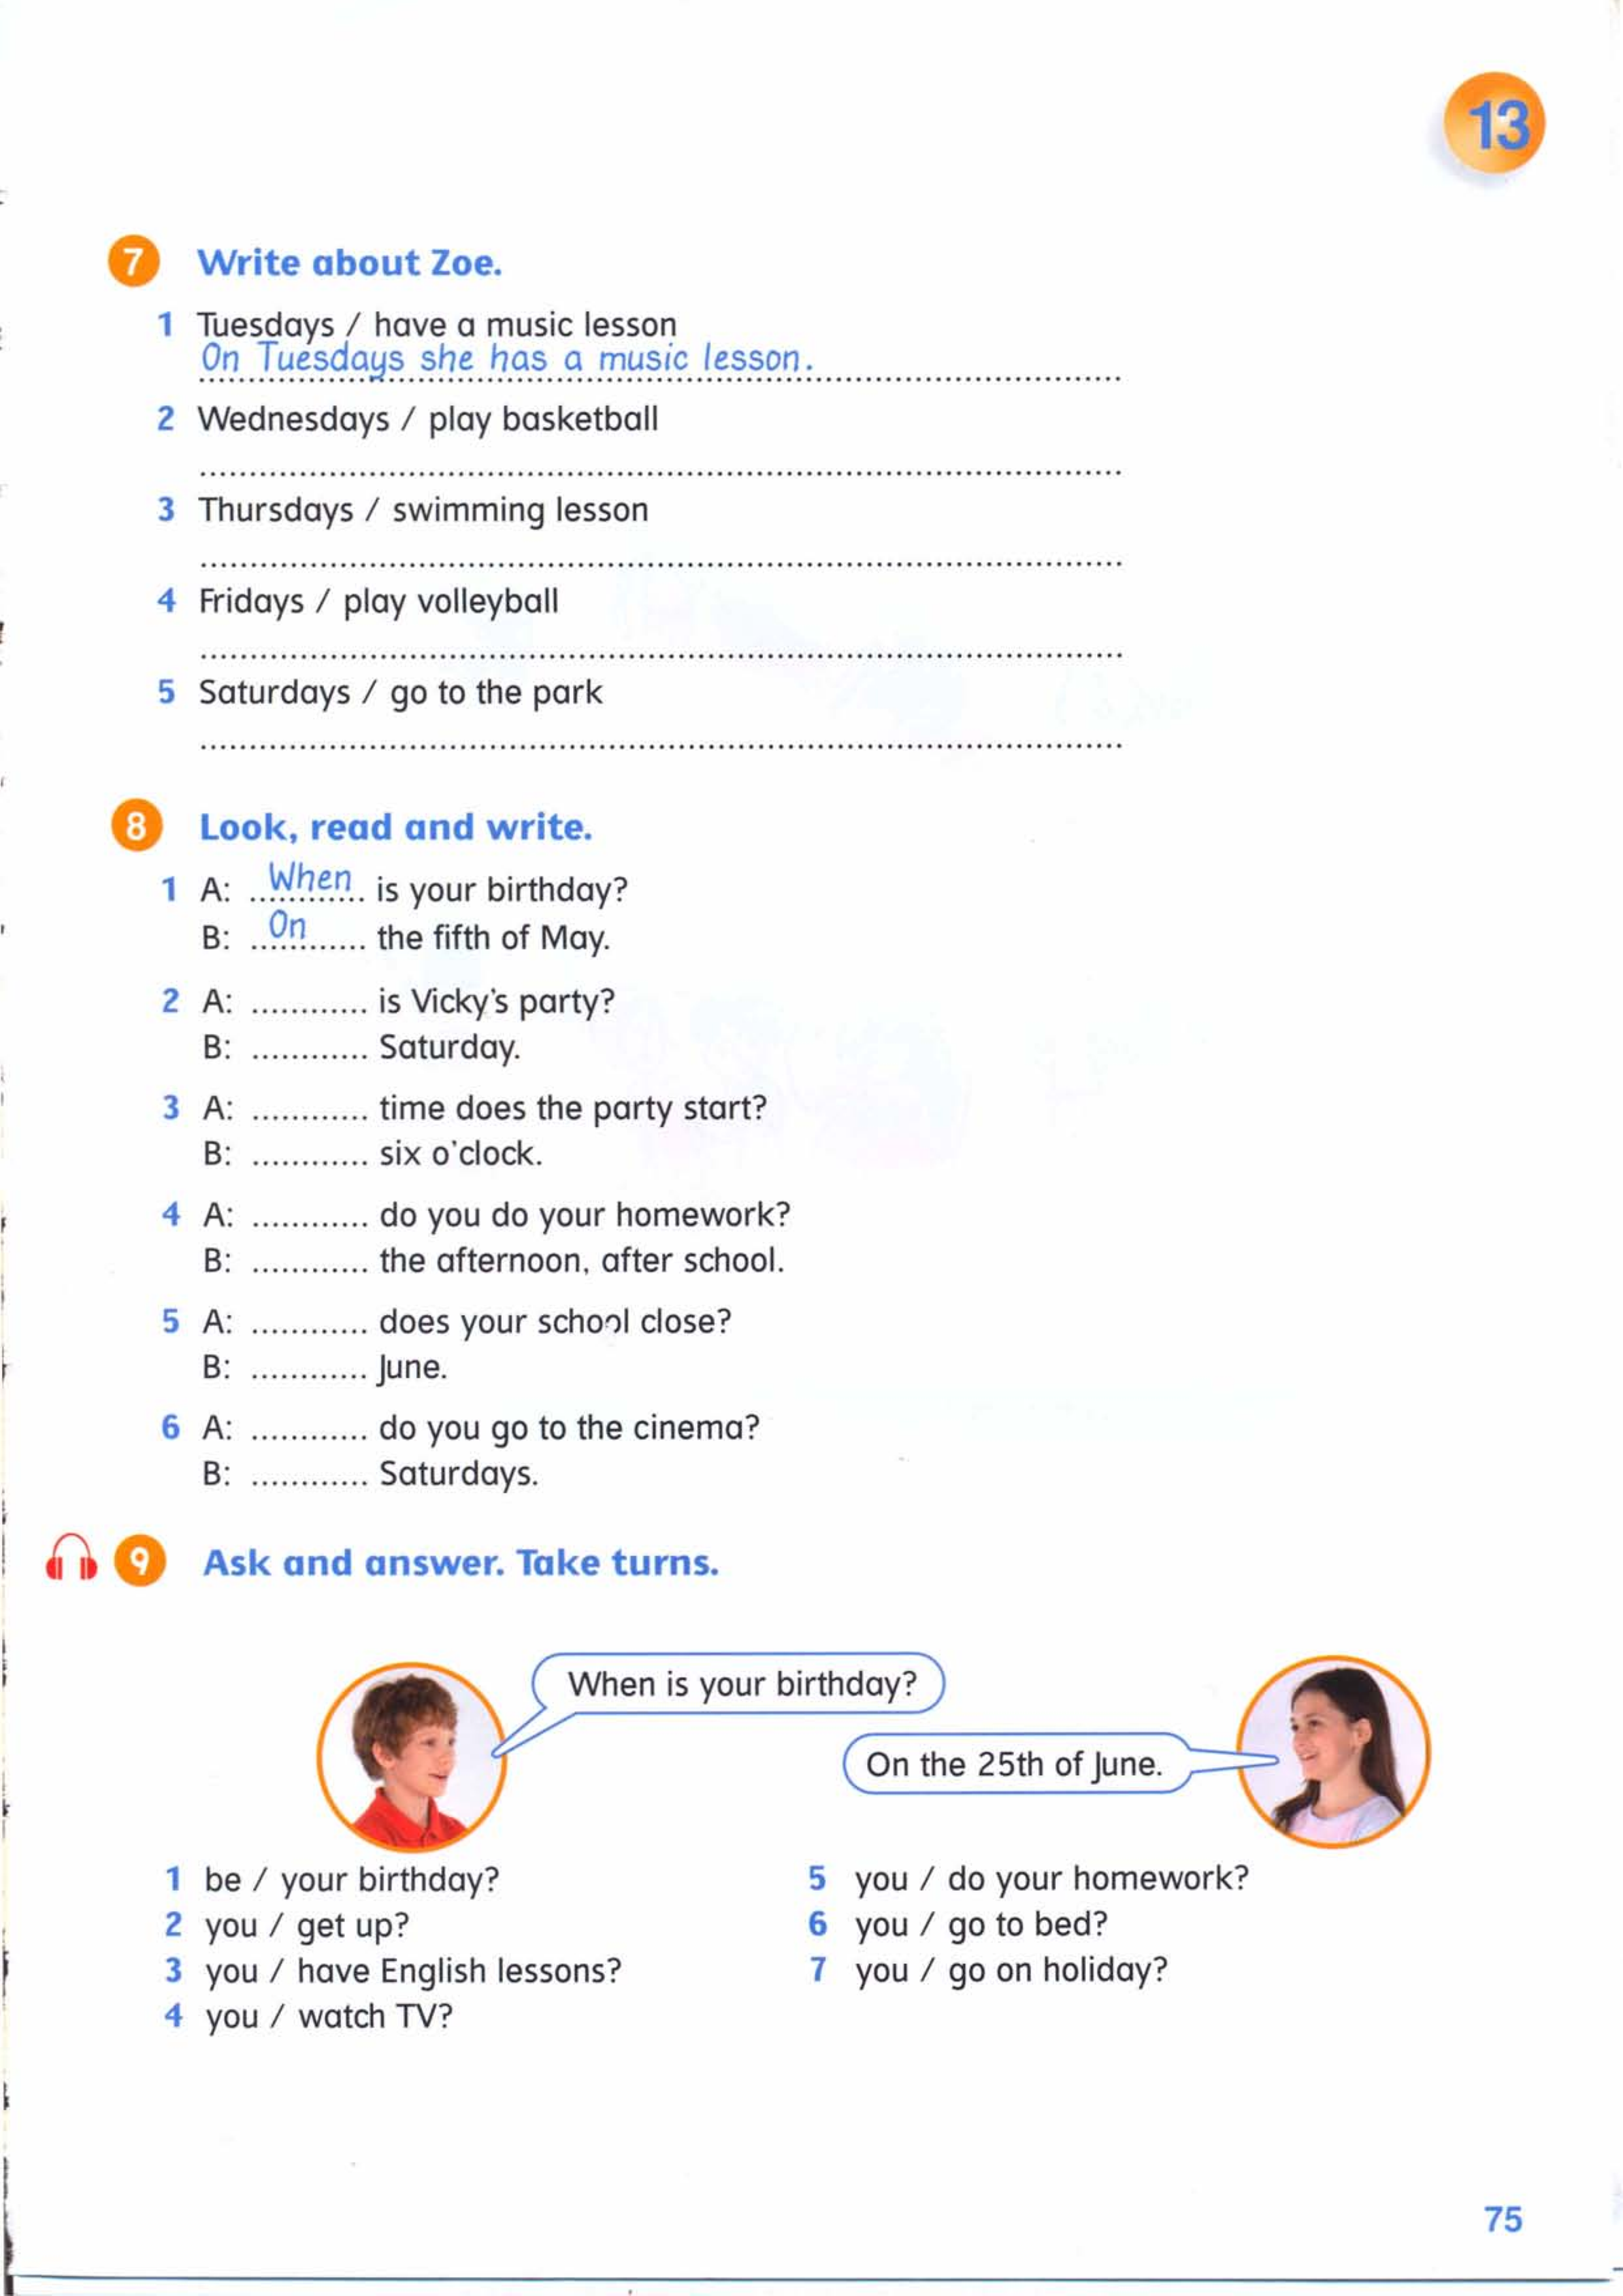 13
7 Write about Zoe.
1 Tuesdays / have a music lesson
On Tuesdays she has a music lesson.
2 Wednesdays / play basketball
3 Thursdays / swimming lesson
4 Fridays / play volleyball
5 Saturdays / go to the park
8 Look, read and write.
1 A: When is your birthday?
B: On the fifth of May.
2 A: ............ is Vicky's party?
B: ............ Saturday.
3 A: ............ time does the party start?
B: ............ six o'clock.
4 A: ............ do you do your homework?
B: ............ the afternoon, after school.
5 A: ............ does your school close?
B: ............ June.
6 A: ............ do you go to the cinema?
B: ............ Saturdays.
9 Ask and answer. Take turns.
When is your birthday?
On the 25th of June.
1 be / your birthday?
2 you / get up?
3 you / have English lessons?
4 you / watch TV?
5 you / do your homework?
6 you / go to bed?
7 you / go on holiday?
75